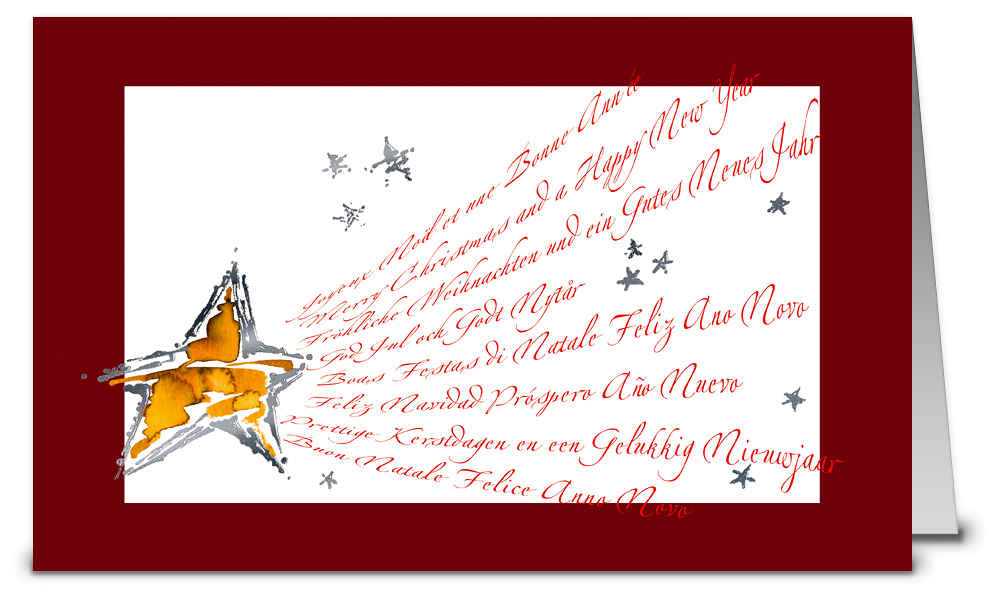 Joyeux Noël et une Bonne Année
Merry Christmas and a Happy New Year
Fröhliche Weihnachten und ein Gutes Neues Jahr
God Jul och Godt Nytår
Boas Festas di Natale Feliz Ano Novo
Feliz Navidad Próspero Año Nuevo
Prettige Kerstdagen en een Gelukkig Nieuwjaar
Buon Natale Felice Anno Novo